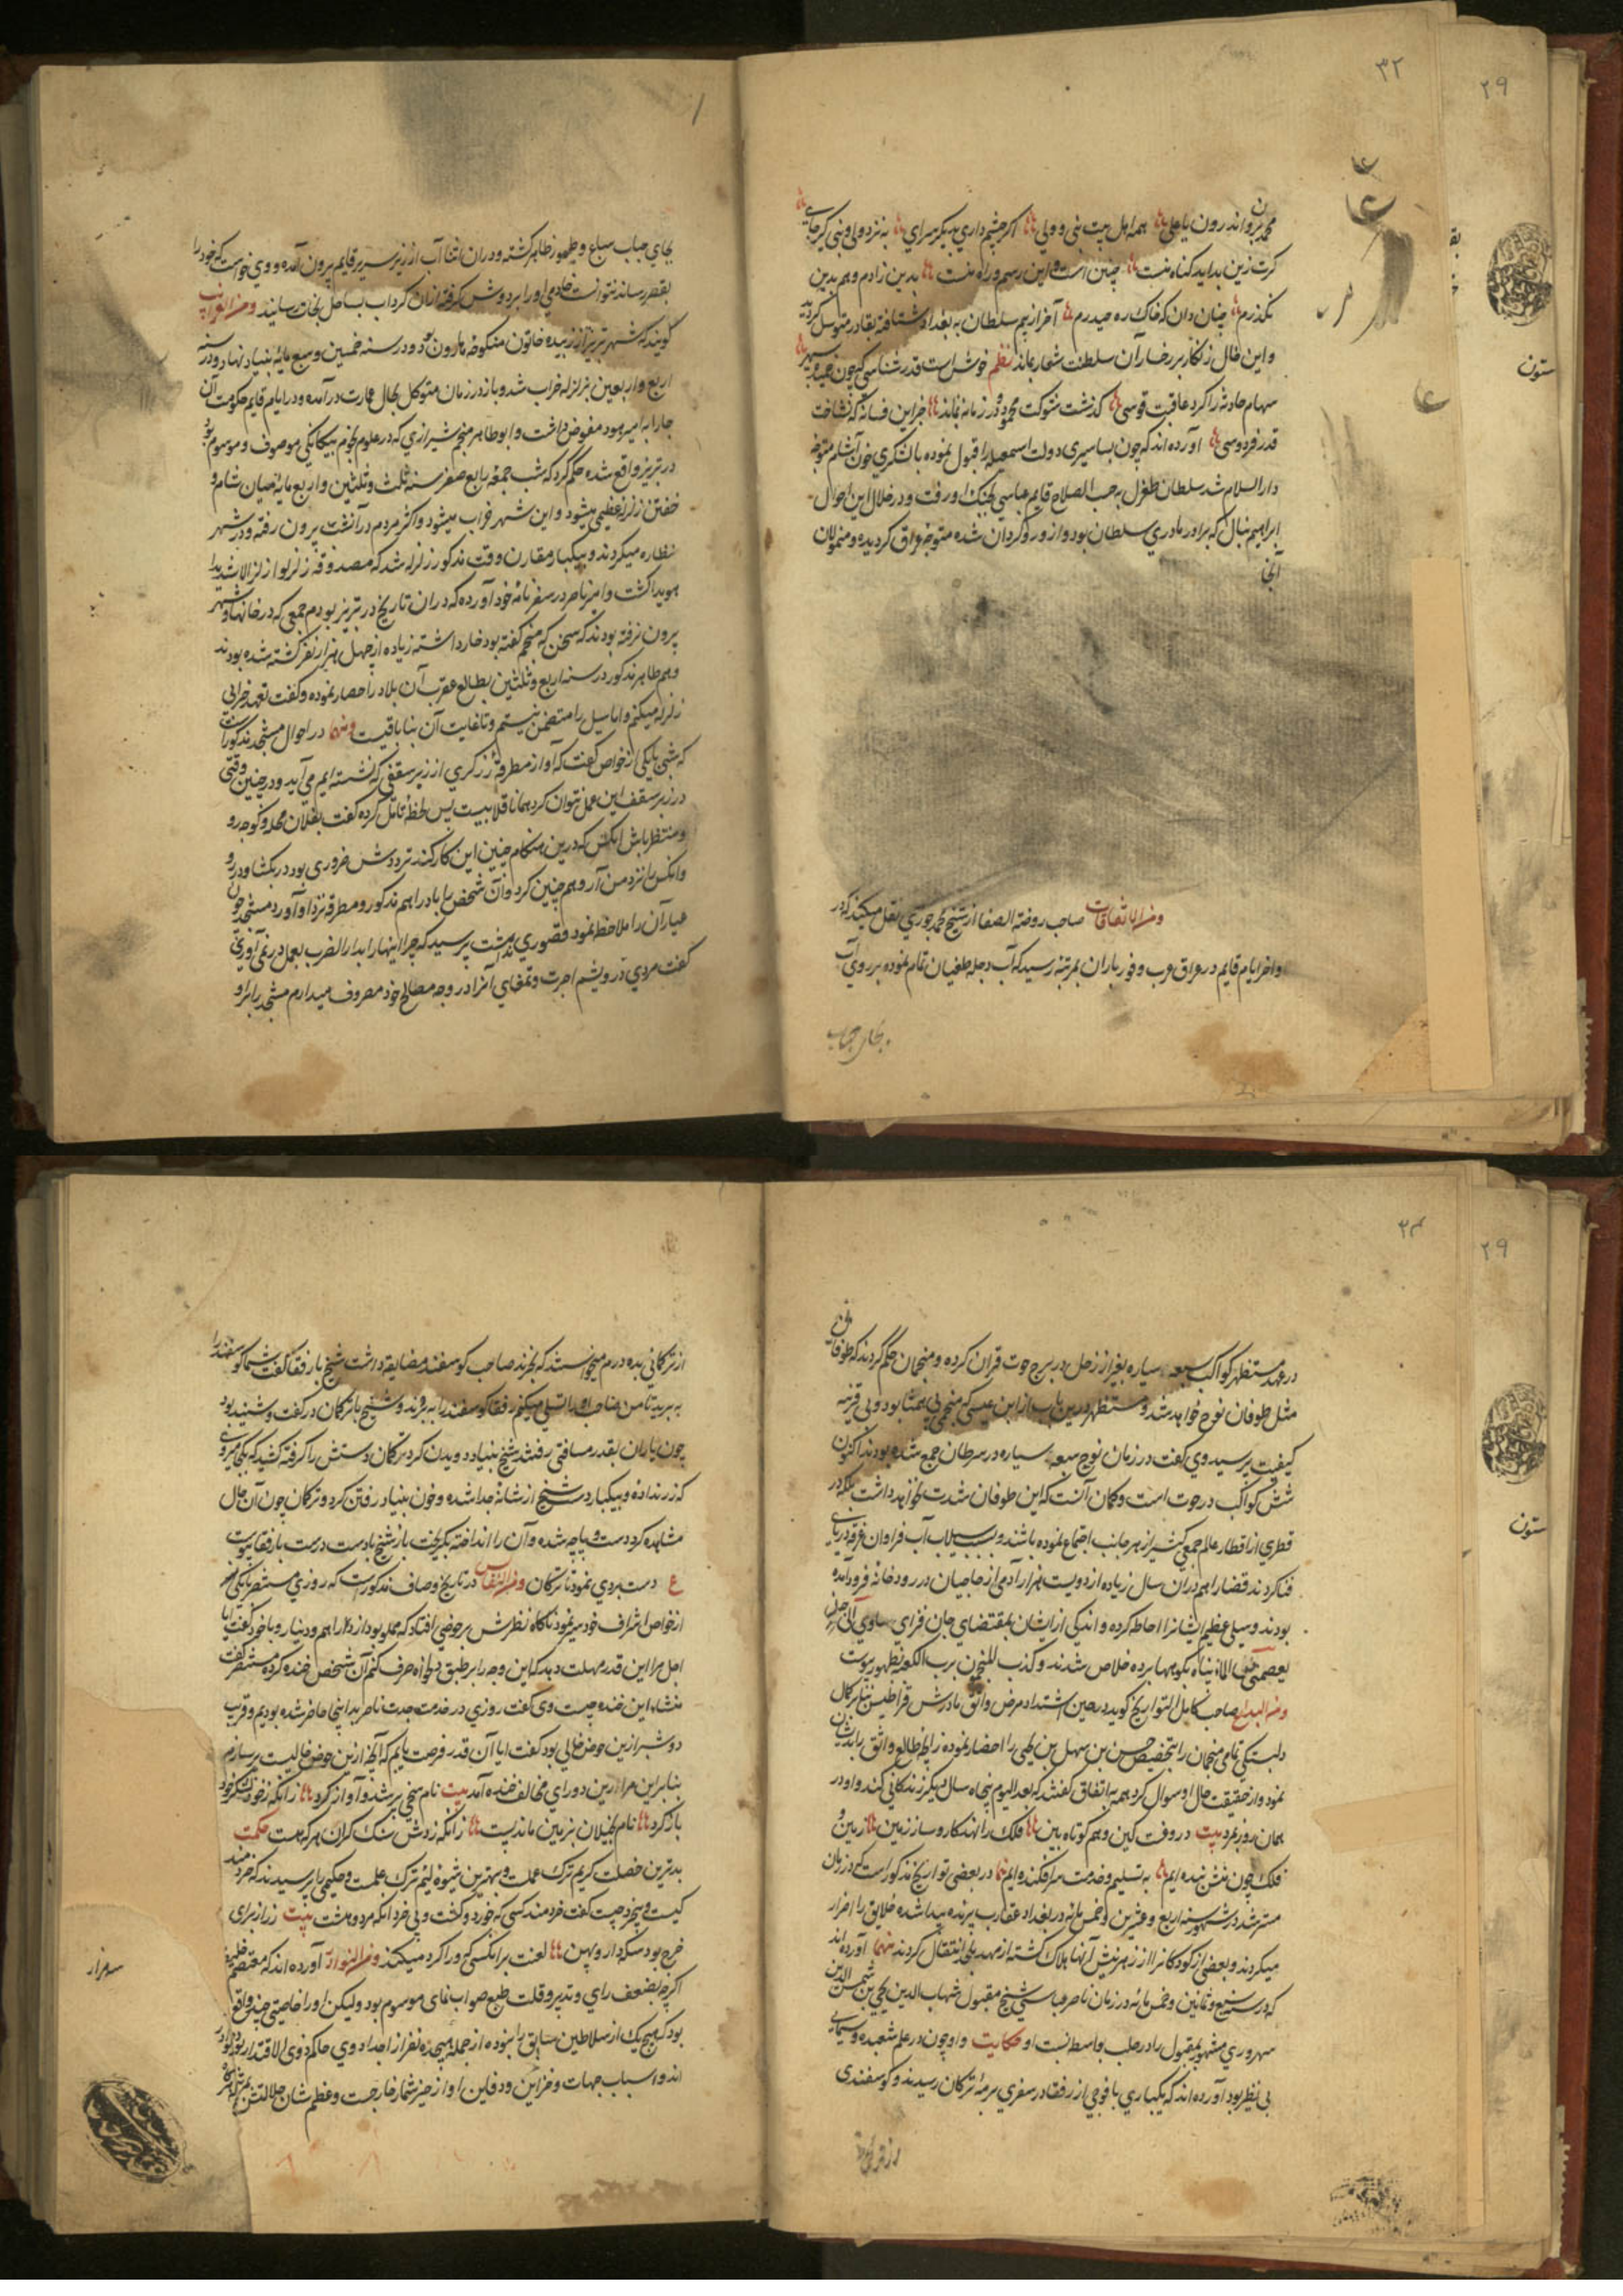 ۳۲
۲۹
محمد برو اندرون با علی همه اهل بیت نبی و ولی اگر چشم داری بدیگر سرای به نزد ولی و نبی گیر جای
گرت زین بد آید گناه منست چنین است و این رسم و راه منست بدین زادم و هم بدین
بگذرم چنان دان که خاک ره حیدرم آخر از بیم سلطان به بغداد شتافته بقادر متوسل گردید
و این خال زنگار بر رخسار آن سلطنت شعار بماند نظم خوش است قدر شناسی که چون خمیده سپهر
سهام حادثه را کرد عاقبت قوسی گذشت شوکت محمود و در زمانه نماند جز این فسانه که نشناخت
قدر فردوسی آورده اند که چون بساسیری دولت اسمعیلیه را قبول نموده با لشکری خون آشام متوجه
دار السلام شد سلطان طغرل به حسب الصلاح قایم عباسی بجنگ او رفت و در خلال این احوال
ابراهیم نیال که برادر مادری سلطان بود و از او رو گردان شده متوجه عراق گردیده و متمولان
آنجا
ومن الاتفاقات صاحب روضة الصفا از شیخ محمد جوزی نقل میکند که در
واخر ایام قایم در عراق عرب وفور باران بمرتبه رسید که آب دجله طغیان تمام نموده بر روی آب
بجای حباب
ستون
بجای حباب سباع و طیور ظاهر گشته و در ان اثنا آب از زیر سریر قایم بیرون آمده و وی خواست که خود را
بقصر رساند نتوانست خادمی او را بر دوش گرفته از ان گرداب بساحل نجات رسانید ومن الغرایب
گویند که شهر تبریز از زبیده خاتون منکوحه هارون بود و در سنه خمسین و سبع مایه بنیاد نهاد و در سنه
اربع و اربعین بزلزله خراب شد و باز در زمان متوکل بحال عمارت درآمده و در ایام قایم حکومت آن
جا را به امیر وهسود مفوض داشت و ابوطاهر منجم شیرازی که در علوم نجوم بیگانگی موصوف و موسوم بود
در تبریز واقع شده حکم کرد که شب جمعه رابع صفر سنه ثلث و ثلثین و اربع مایه میان شام و
خفتن زلزله عظیمی میشود و این شهر خراب میشود و اکثر مردم در آنشب بیرون رفته و در شهر
نظاره میکردند و بیکبار مقارن وقت مذکور زلزله شد که مصدوقه زلزلوا زلزالا شدیدا
هویدا گشت و امیر ناصر در سفر نامه خود آورده که در ان تاریخ در تبریز بودم جمعی که در خانها و شهر
بیرون نرفته بودند که سخن که منجم گفته بود خار داشته زیاده از چهل هزار نفر کشته شده بودند
و هم طاهر مذکور در سنه اربع و ثلثین بطالع عقرب آن بلاد را حصار نموده و گفت تعهد خرابی
زلزله میکنم و اما سیل را متضمن نیستم و تا غایت آن بنا باقیست ومنها در احوال مستنجد مذکور است
که شبی با یکی از خواص گفت که آواز مطرقه زرگری از زیر سقفی که نشسته ایم می آید و در چنین وقتی
در زیر سقف این عمل نتوان کرد همانا قلابیست پس لحظه تامل کرده گفت بفلان محله و کوچه رو
و منتظر باش آنکس که درین هنگام چنین این کار کند ترددش ضروری بود در بگشاید درو
و آنکس را نزد من آر و هم چنین کرد و آن شخص را با دراهم مذکور و مطرقه نزد او آورد مستنجد چون
عیار آن را ملاحظه نمود قصوری نداشت پرسید که چرا اینها را بدار الضرب بعمل در نمی آوری
گفت مردی درویشم اجرت و تمغای آنرا در وجه مصالح خود مصروف میدارم مستنجد را برو
۳۳
۲۹
در عهد مستظهر کواکب سبعه سیاره بغیر از زحل در برج حوت قران کرده و منجمان حکم کردند که طوفانی
مثل طوفان نوح خواهد شد و مستظهر درین باب از ابن عیسی که منجمی بی همتا بود و بی قرینه
کیفیت پرسید وی گفت در زمان نوح سبعه سیاره در سرطان جمع شده بودند اکنون
شش کواکب در حوت است و گمان آنست که این طوفان شدت نخواهد داشت بلکه در
قطری از اقطار عالم جمعی کثیر از هر جانب اجتماع نموده باشند و بسبب سیلاب آب فراوان غرقه دریای
فنا کردند قضا را هم در ان سال زیاده از دویست هزار آدمی از حاجیان در رودخانه فرود آمده
بودند و سیل عظیم ایشانرا احاطه کرده و اندکی از ایشان بمقتضای جان فزای ساوی الی جبل
یعصمنی من الماء پناه بکوهها برده خلاص شدند و کذب المنجمون برب الکعبه بظهور پیوست
ومن البدایع صاحب کامل التواریخ گوید در حین اشتداد مرض واثق مادرش قراطیس بنابر کمال
دلبستگی تمامی منجمان را بتخصیص حسن بن سهل بن یحیی را احضار نموده زایچه طالع واثق را بدیشان
نمود و از حقیقت حال او سوال کرد همه به اتفاق گفتند که بعد الیوم پنجاه سال دیگر زندگانی کند و او در
همان روز بمرد بیت در وقت کین و هم کوتاه بین فلک را نهد کار و ساز زمین زمین و
فلک چون منش بنده ایم به تسلیم و خدمت سر افکنده ایم منها در بعضی تواریخ مذکور است که در زمان
مسترشد در شهور سنه اربع و عشرین و خمس مائه در بغداد عقارب پرنده پیدا شده خلایق را اضرار
میکردند و بعضی از کودکان را از زهر نیش آنها هلاک گشته از مهد بلحد انتقال کردند منها آورده اند
که در سنه سبع و ثمانین و خمس مائه در زمان ناصر عباسی شیخ مقبول شهاب الدین یحیی بن شمس الدین
سهروردی مشهور بمقتول را در حلب بواسطه نسبت او حکایت و او چون در علم شعبده و سیمیا
بی نظیر بود آورده اند که یکباری با فوجی از رفقا در سفری برمه ترکان رسیدند و گوسفندی
از ترکمانی
ستون
از ترکمانی بده درم میخواستند که بخرند صاحب گوسفند مضایقه داشت شیخ با رفقا گفت شما گوسفند را
به برید تا من صاحب او را تسلی میکنم رفقا گوسفند را به بردند و شیخ با ترکمان در گفت و شنید بود
چون یاران بقدر مسافتی رفتند شیخ بنیاد دویدن کرد ترکمان دستش را گرفته کشید که کجا میروی
که زر نداده و بیکبار دست شیخ از شانه جدا شده و خون بنیاد رفتن کرد و ترکمان چون آن حال
مشاهده کرد دست و پاچه شده و آن را انداخته بگریخت باز شیخ با دست درست با رفقا پیوست
ع دست بردی نمود تا ترکان ومن النفایس در تاریخ وصاف مذکور است که روزی مستنصر با یکی
از خواص اشراف خود سیر مینمود ناگاه نظرش بر حوضی افتاد که مملو بود از دراهم و دنیار و با خود گفت آیا
اجل مرا این قدر مهلت دهد که این وجه را بر طبق دلخواه صرف کنم آن شخص خنده کرده مستنصر گفت
منشاء این خنده چیست وی گفت روزی در خدمت جدت ناصر بدینجا حاضر شده بودیم و قریب
دو شبر ازین حوض خالی بود گفت آیا آن قدر فرصت یابم که آنچه ازین حوض خالیست پر سازم
بنابراین مرا ازین دو رای مخالف خنده آمد بیت نام سخی پر شد و آواز کرد زانکه ز خود لنگر خود
باز کرد نام بخیلان بزمین ماندیست زانکه زدوش سنگ گران هر که هست حکمت
بدترین خصلت کریم ترک عملست و بهترین شیوه لئیم ترک عملست و حکیمی را پرسیدند که خردمند
کیست و بیخرد چیست گفت خردمند کسی که خورد و کشت و بی خرد آنکه مرد و هشت بیت زر از برای
خرج بود سکه دار و پهن لعنت بر آنکسی که ورا گرد میکند ومن النوادر آورده اند که معتصم خلیفه
اگرچه بضعف رای و تدبیر و قلت طبع صواب نمای موسوم بود و لیکن او را خاصیتی چند واقع
بود که هیچ یک از سلاطین سابق را نبوده از جمله هیجده نفر از اجداد وی حاکم ذوی الاقتدار بوده
اند و اسباب جهات و خزاین و دفاین او از حیز شمار خارجست و عظم شان جلالتش